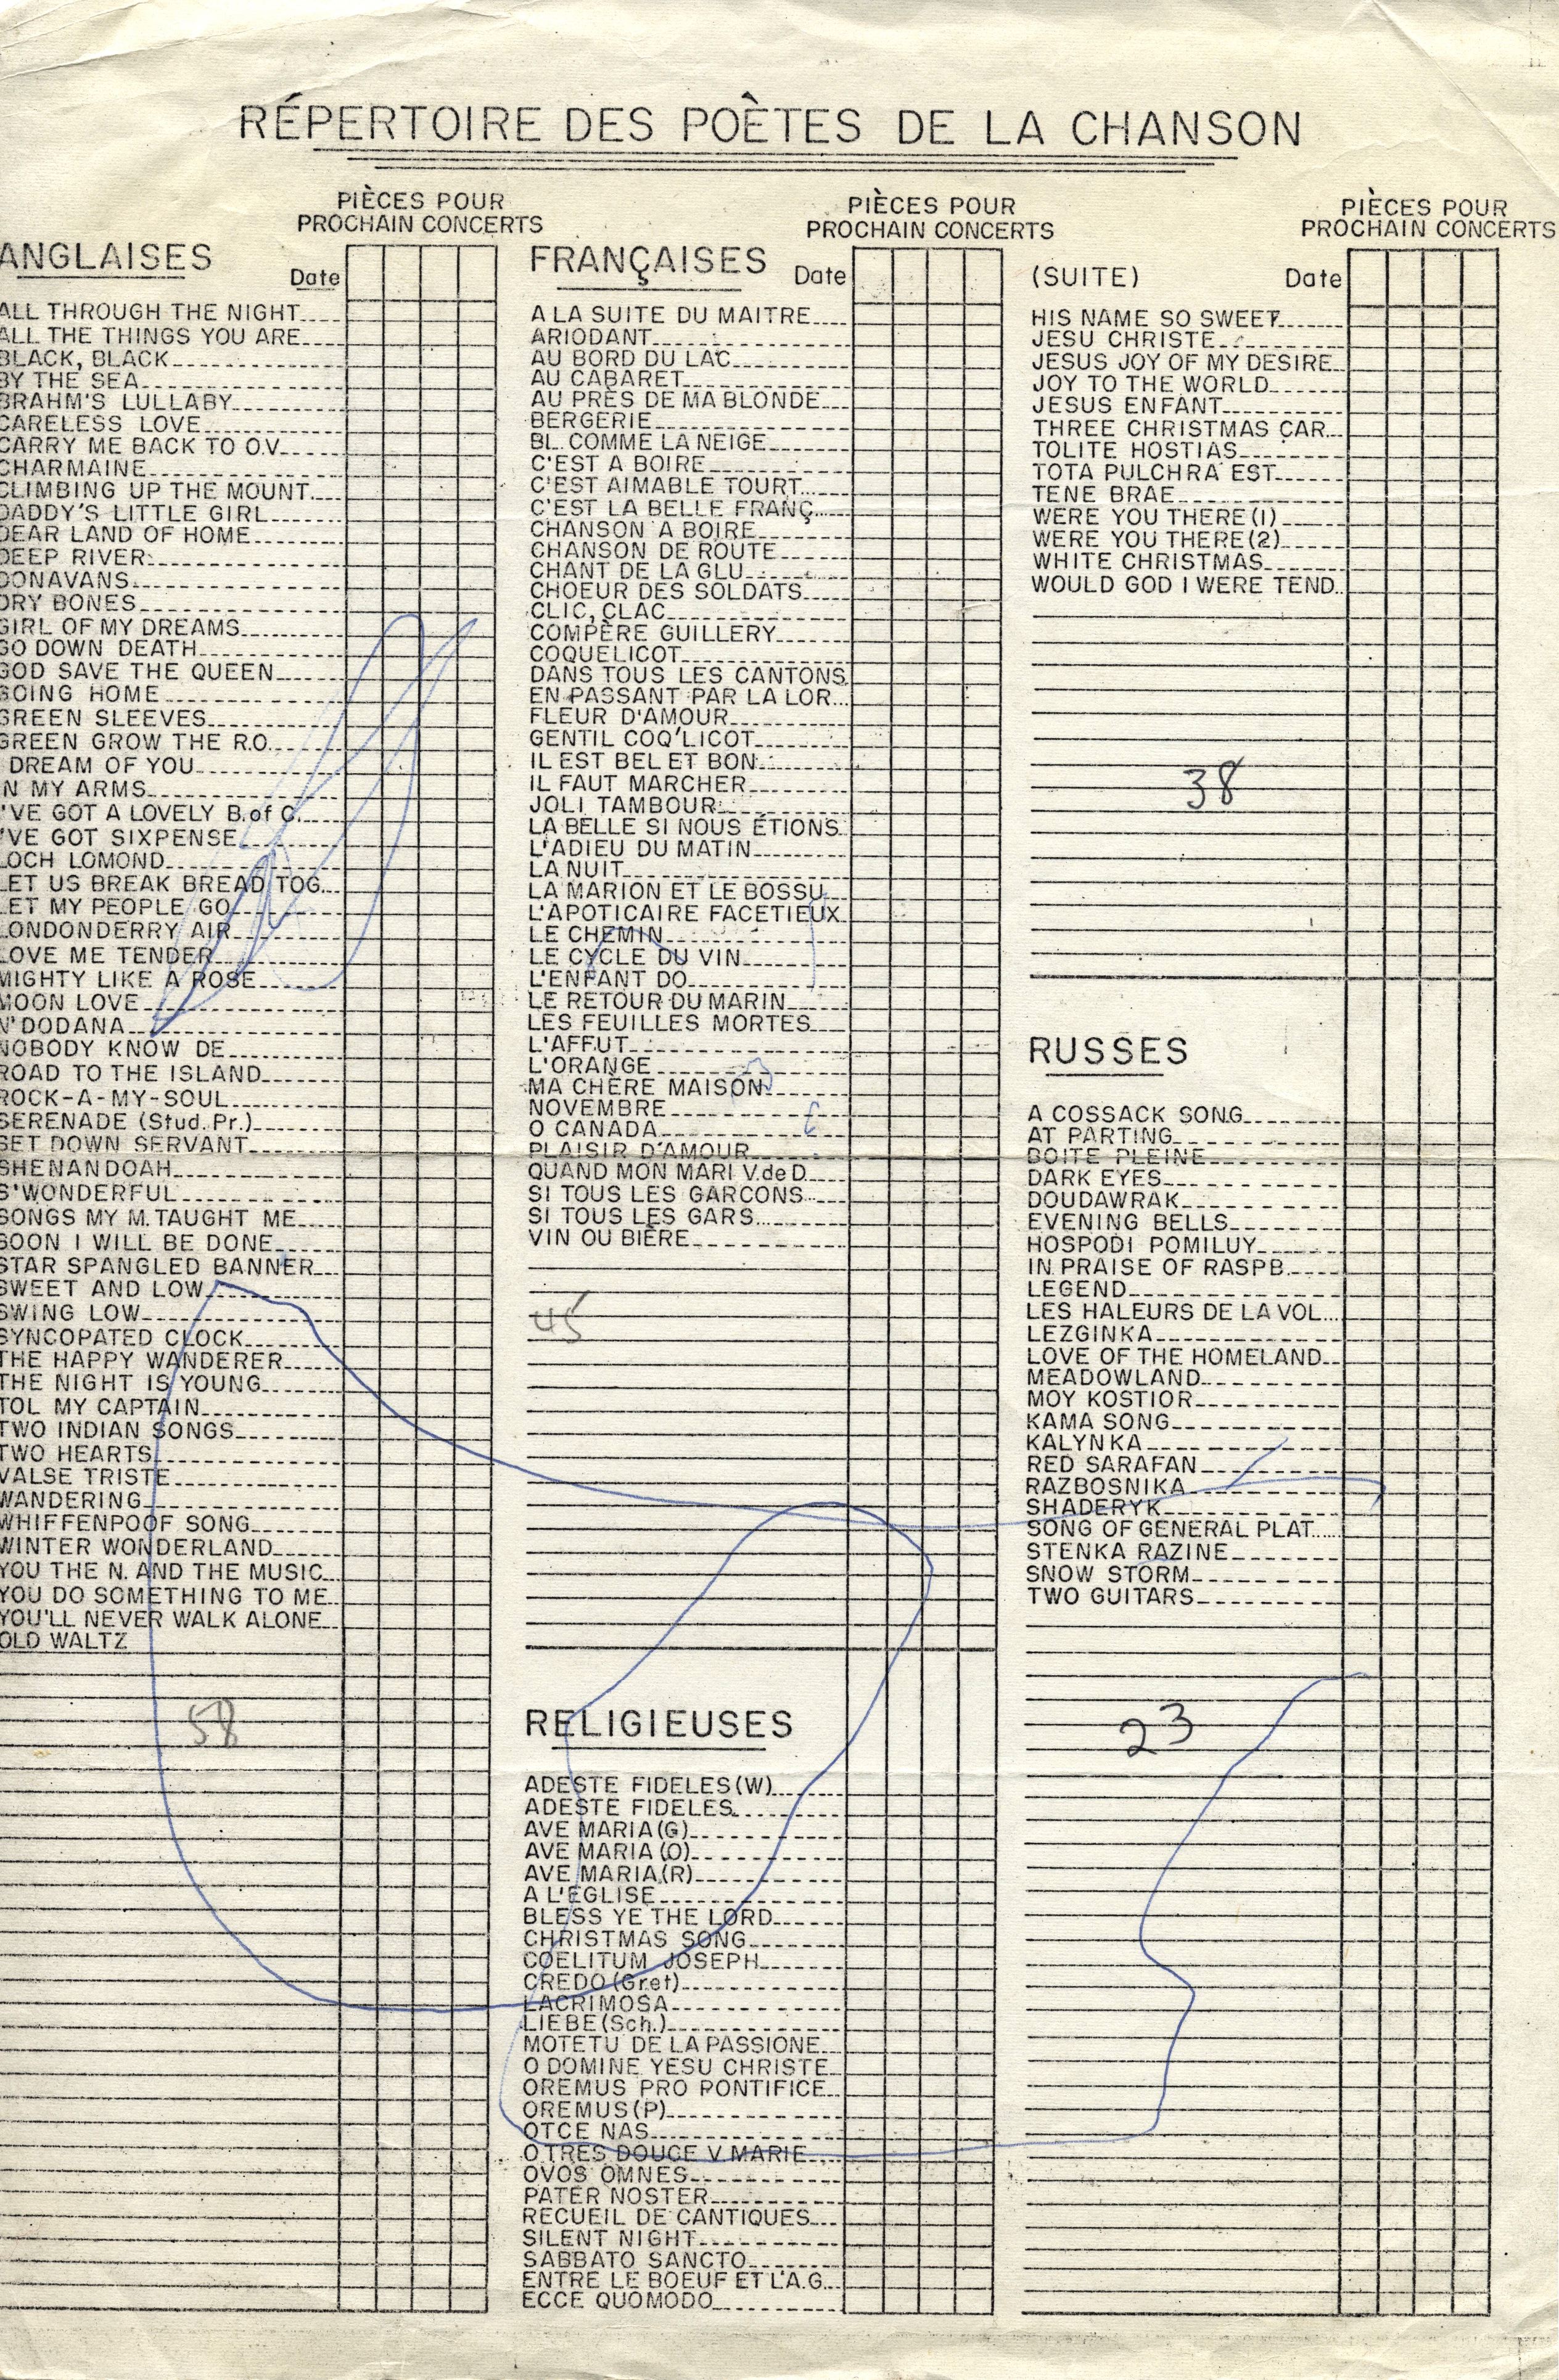 RÉPERTOIRE DES POÈTES DE LA CHANSON
PIÈCES POUR
PROCHAIN CONCERTS
ANGLAISES
Date
ALL THROUGH THE NIGHT
ALL THE THINGS YOU ARE
BLACK, BLACK
BY THE SEA
BRAHM'S LULLABY
CARELESS LOVE
CARRY ME BACK TO O.V.
CHARMAINE
CLIMBING UP THE MOUNT.
DADDY'S LITTLE GIRL
DEAR LAND OF HOME
DEEP RIVER
DONAVANS
DRY BONES
GIRL OF MY DREAMS
GO DOWN DEATH
GOD SAVE THE QUEEN
GOING HOME
GREEN SLEEVES
GREEN GROW THE R.O.
DREAM OF YOU
IN MY ARMS
I'VE GOT A LOVELY B. of C.
I'VE GOT SIXPENSE
LOCH LOMOND
LET US BREAK BREAD TOG.
LET MY PEOPLE GO
LONDONDERRY AIR
LOVE ME TENDER
MIGHTY LIKE A ROSE
MOON LOVE
N'DODANA
NOBODY KNOW DE
ROAD TO THE ISLAND
ROCK-A-MY-SOUL
SERENADE (Stud. Pr.)
SET DOWN SERVANT
SHENANDOAH
S'WONDERFUL
SONGS MY M. TAUGHT ME
SOON I WILL BE DONE
STAR SPANGLED BANNER
SWEET AND LOW
SWING LOW
SYNCOPATED CLOCK
THE HAPPY WANDERER
THE NIGHT IS YOUNG
TOL MY CAPTAIN
TWO INDIAN SONGS
TWO HEARTS
VALSE TRISTE
WANDERING
WHIFFENPOOF SONG
WINTER WONDERLAND
YOU THE N. AND THE MUSIC
YOU DO SOMETHING TO ME
YOU'LL NEVER WALK ALONE
OLD WALTZ
58
PIÈCES POUR
PROCHAIN CONCERTS
FRANÇAISES
Date
A LA SUITE DU MAITRE
ARIODANT
AU BORD DU LAC
AU CABARET
AU PRÈS DE MA BLONDE
BERGERIE
BL. COMME LA NEIGE
C'EST A BOIRE
C'EST AIMABLE TOURT.
C'EST LA BELLE FRANÇ.
CHANSON A BOIRE
CHANSON DE ROUTE
CHANT DE LA GLU
CHOEUR DES SOLDATS
CLIC, CLAC
COMPÈRE GUILLERY
COQUELICOT
DANS TOUS LES CANTONS
EN PASSANT PAR LA LOR.
FLEUR D'AMOUR
GENTIL COQ'LICOT
IL EST BEL ET BON
IL FAUT MARCHER
JOLI TAMBOUR
LA BELLE SI NOUS ÉTIONS
L'ADIEU DU MATIN
LA NUIT
LA MARION ET LE BOSSU
L'APOTICAIRE FACETIEUX
LE CHEMIN
LE CYCLE DU VIN
L'ENFANT DO
LE RETOUR DU MARIN
LES FEUILLES MORTES
L'AFFUT
L'ORANGE
MA CHÈRE MAISON
NOVEMBRE
O CANADA
PLAISIR D'AMOUR
QUAND MON MARI V. de D.
SI TOUS LES GARCONS
SI TOUS LES GARS
VIN OU BIÈRE
45
RELIGIEUSES
ADESTE FIDELES (W)
ADESTE FIDELES
AVE MARIA (G)
AVE MARIA (O)
AVE MARIA (R)
A L'ÉGLISE
BLESS YE THE LORD
CHRISTMAS SONG
COELITUM JOSEPH
CREDO (Gret)
LACRIMOSA
LIEBE (Sch.)
MOTETU DE LA PASSIONE
O DOMINE YESU CHRISTE
OREMUS PRO PONTIFICE
OREMUS (P)
OTCE NAS
O TRES DOUCE V. MARIE
O VOS OMNES
PATER NOSTER
RECUEIL DE CANTIQUES
SILENT NIGHT
SABBATO SANCTO
ENTRE LE BOEUF ET L'A.G.
ECCE QUOMODO
PIÈCES POUR
PROCHAIN CONCERTS
(SUITE)
Date
HIS NAME SO SWEET
JESU CHRISTE
JESUS JOY OF MY DESIRE
JOY TO THE WORLD
JESUS ENFANT
THREE CHRISTMAS CAR.
TOLITE HOSTIAS
TOTA PULCHRA EST
TENE BRAE
WERE YOU THERE (1)
WERE YOU THERE (2)
WHITE CHRISTMAS
WOULD GOD I WERE TEND.
38
RUSSES
A COSSACK SONG
AT PARTING
BOITE PLEINE
DARK EYES
DOUDAWRAK
EVENING BELLS
HOSPODI POMILUY
IN PRAISE OF RASPB.
LEGEND
LES HALEURS DE LA VOL.
LEZGINKA
LOVE OF THE HOMELAND
MEADOWLAND
MOY KOSTIOR
KAMA SONG
KALYNKA
RED SARAFAN
RAZBOSNIKA
SHADERYK
SONG OF GENERAL PLAT.
STENKA RAZINE
SNOW STORM
TWO GUITARS
23